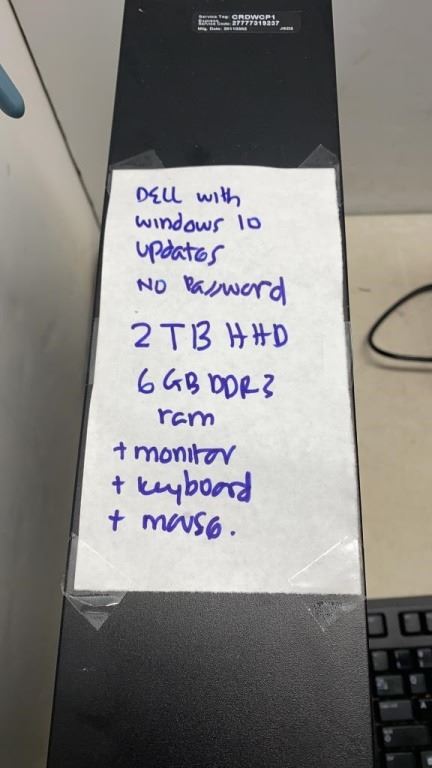 Service Tag: CRDWCP1
Express
Service Code: 27777319237
DELL with
windows 10
updates
NO Password
2 TB HHD
6 GB DDR3
ram
+ monitor
+ keyboard
+ mouse.